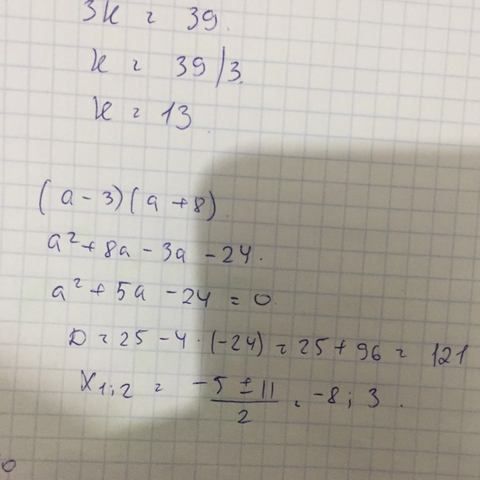 3k = 39.
k = 39/3
k = 13
(a - 3)(a + 8)
a² + 8a - 3a - 24.
a² + 5a - 24 = 0
D = 25 - 4 · (-24) = 25 + 96 = 121
x₁;₂ = (-5 ± 11)/2 = -8; 3.
0